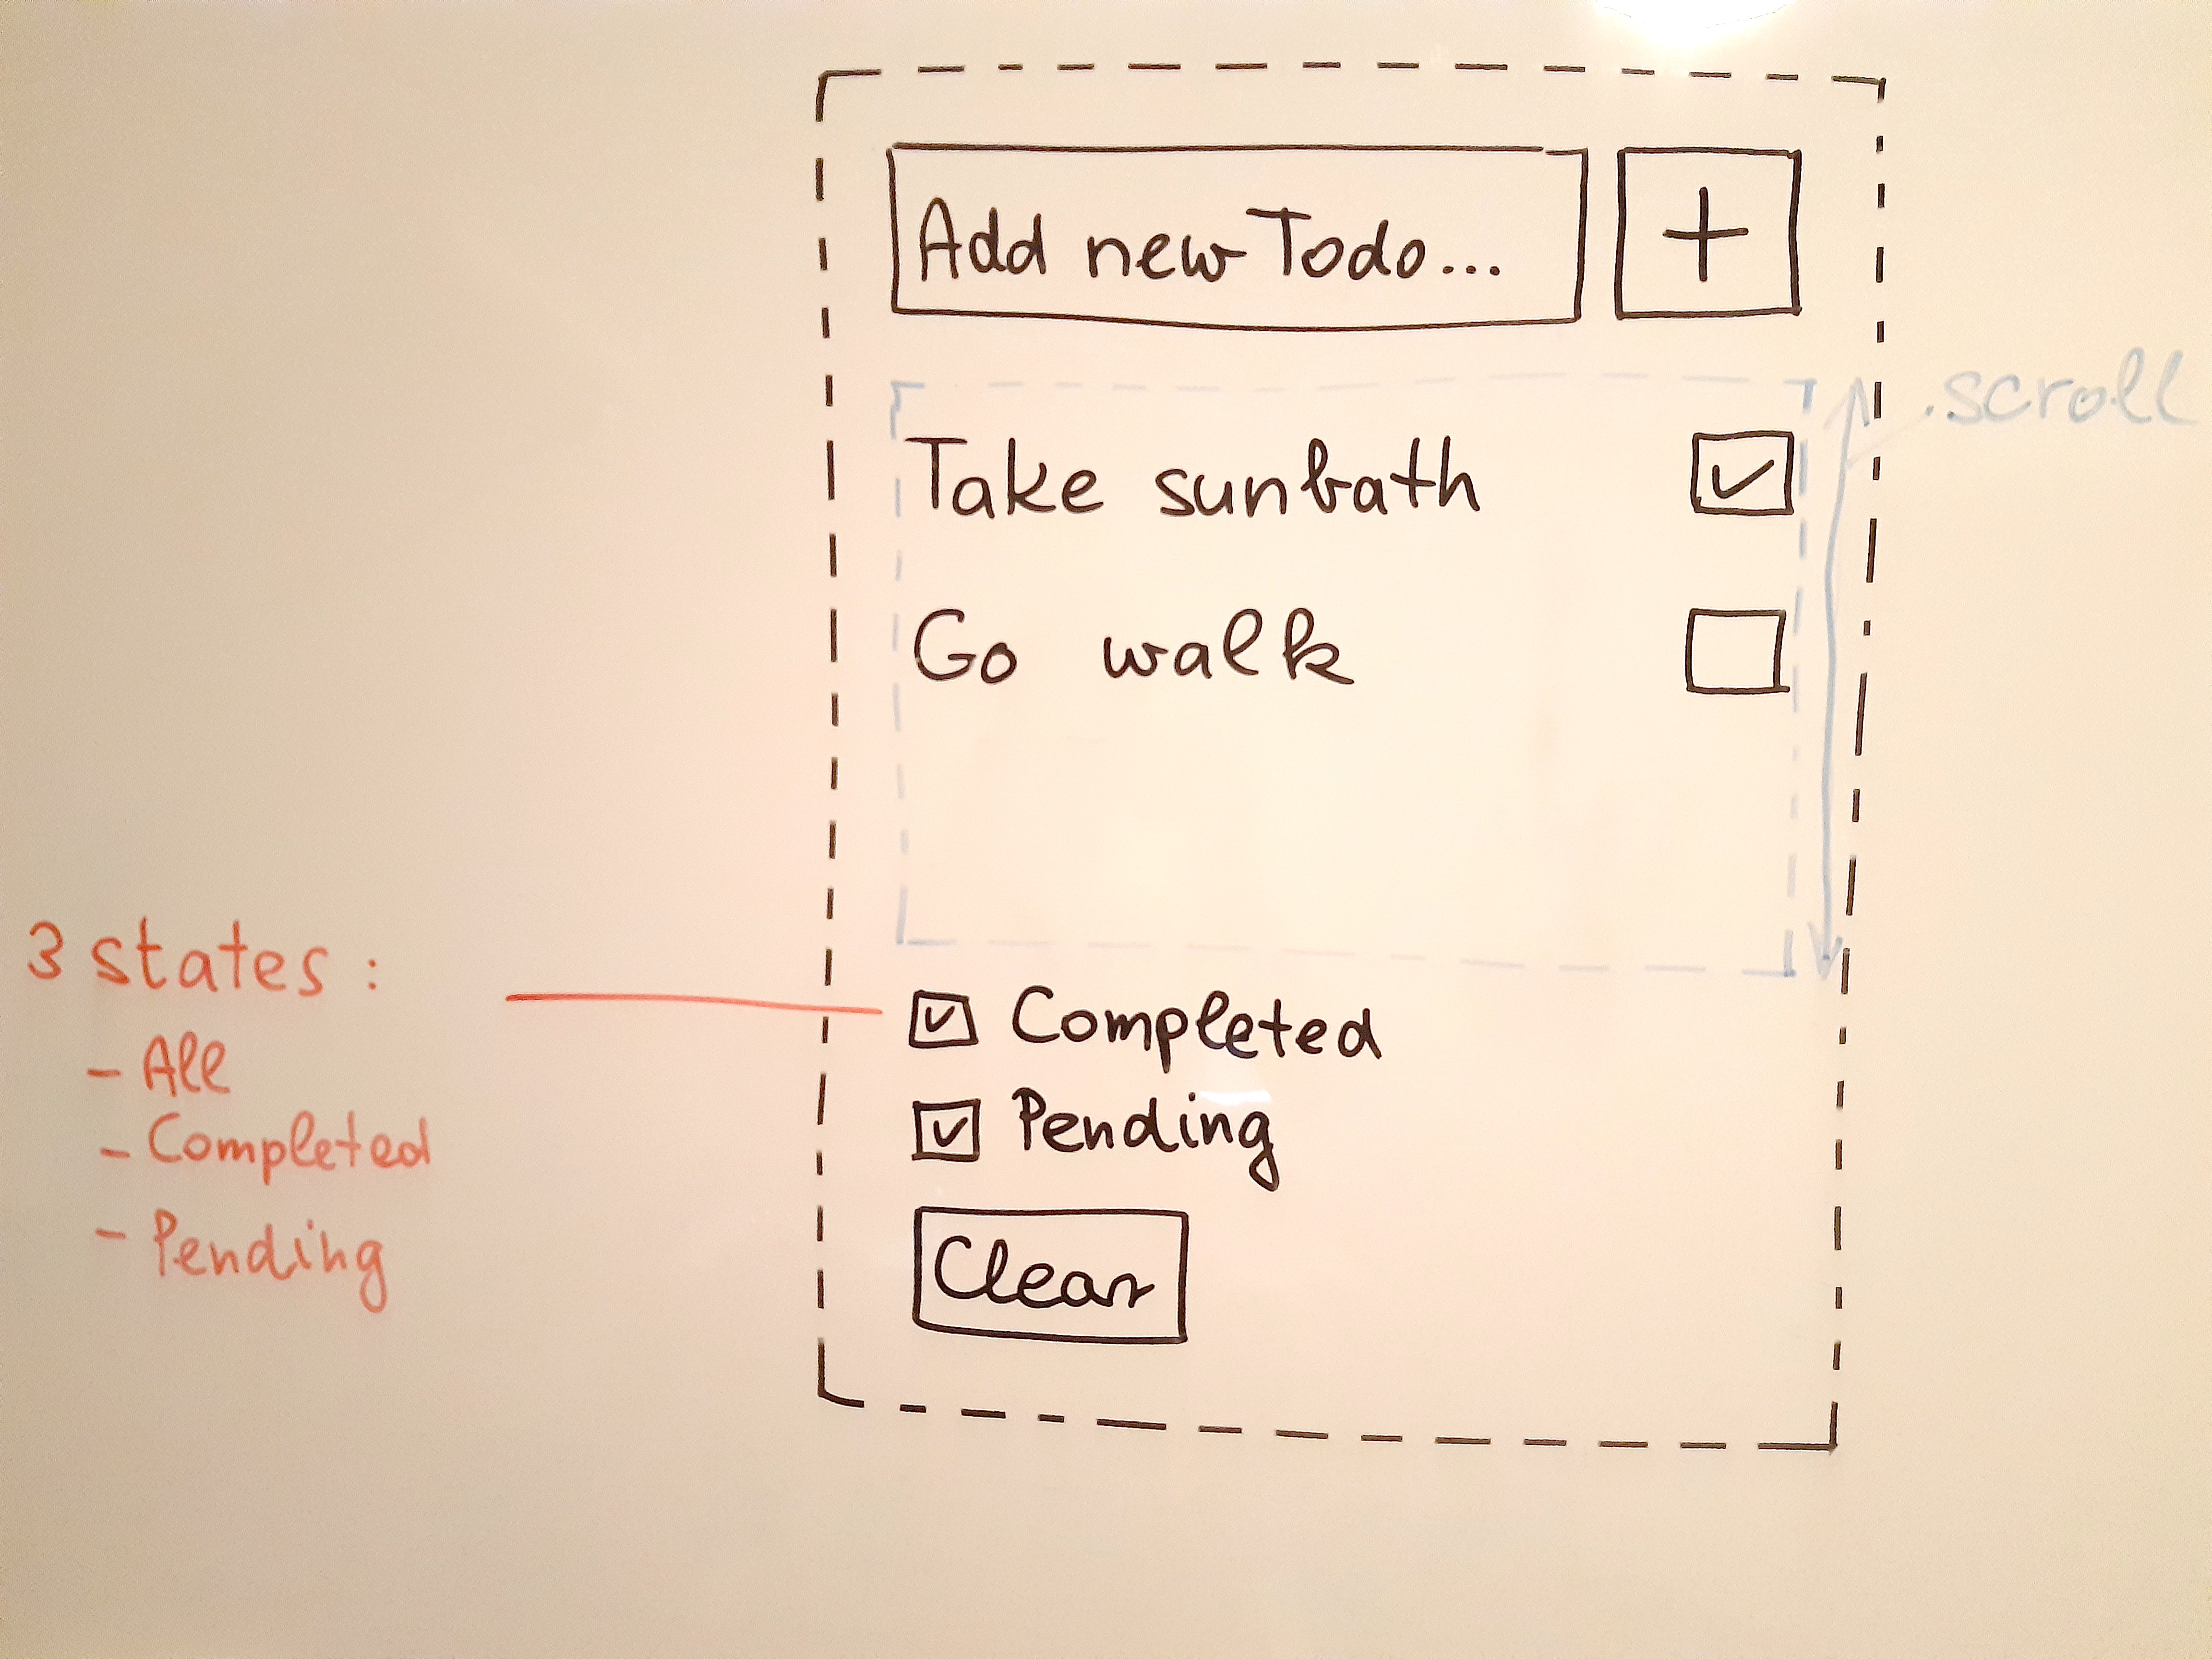 Add new Todo...
+
.scroll
Take sunbath
Go walk
3 states:
- All
- Completed
- Pending
Completed
Pending
Clear